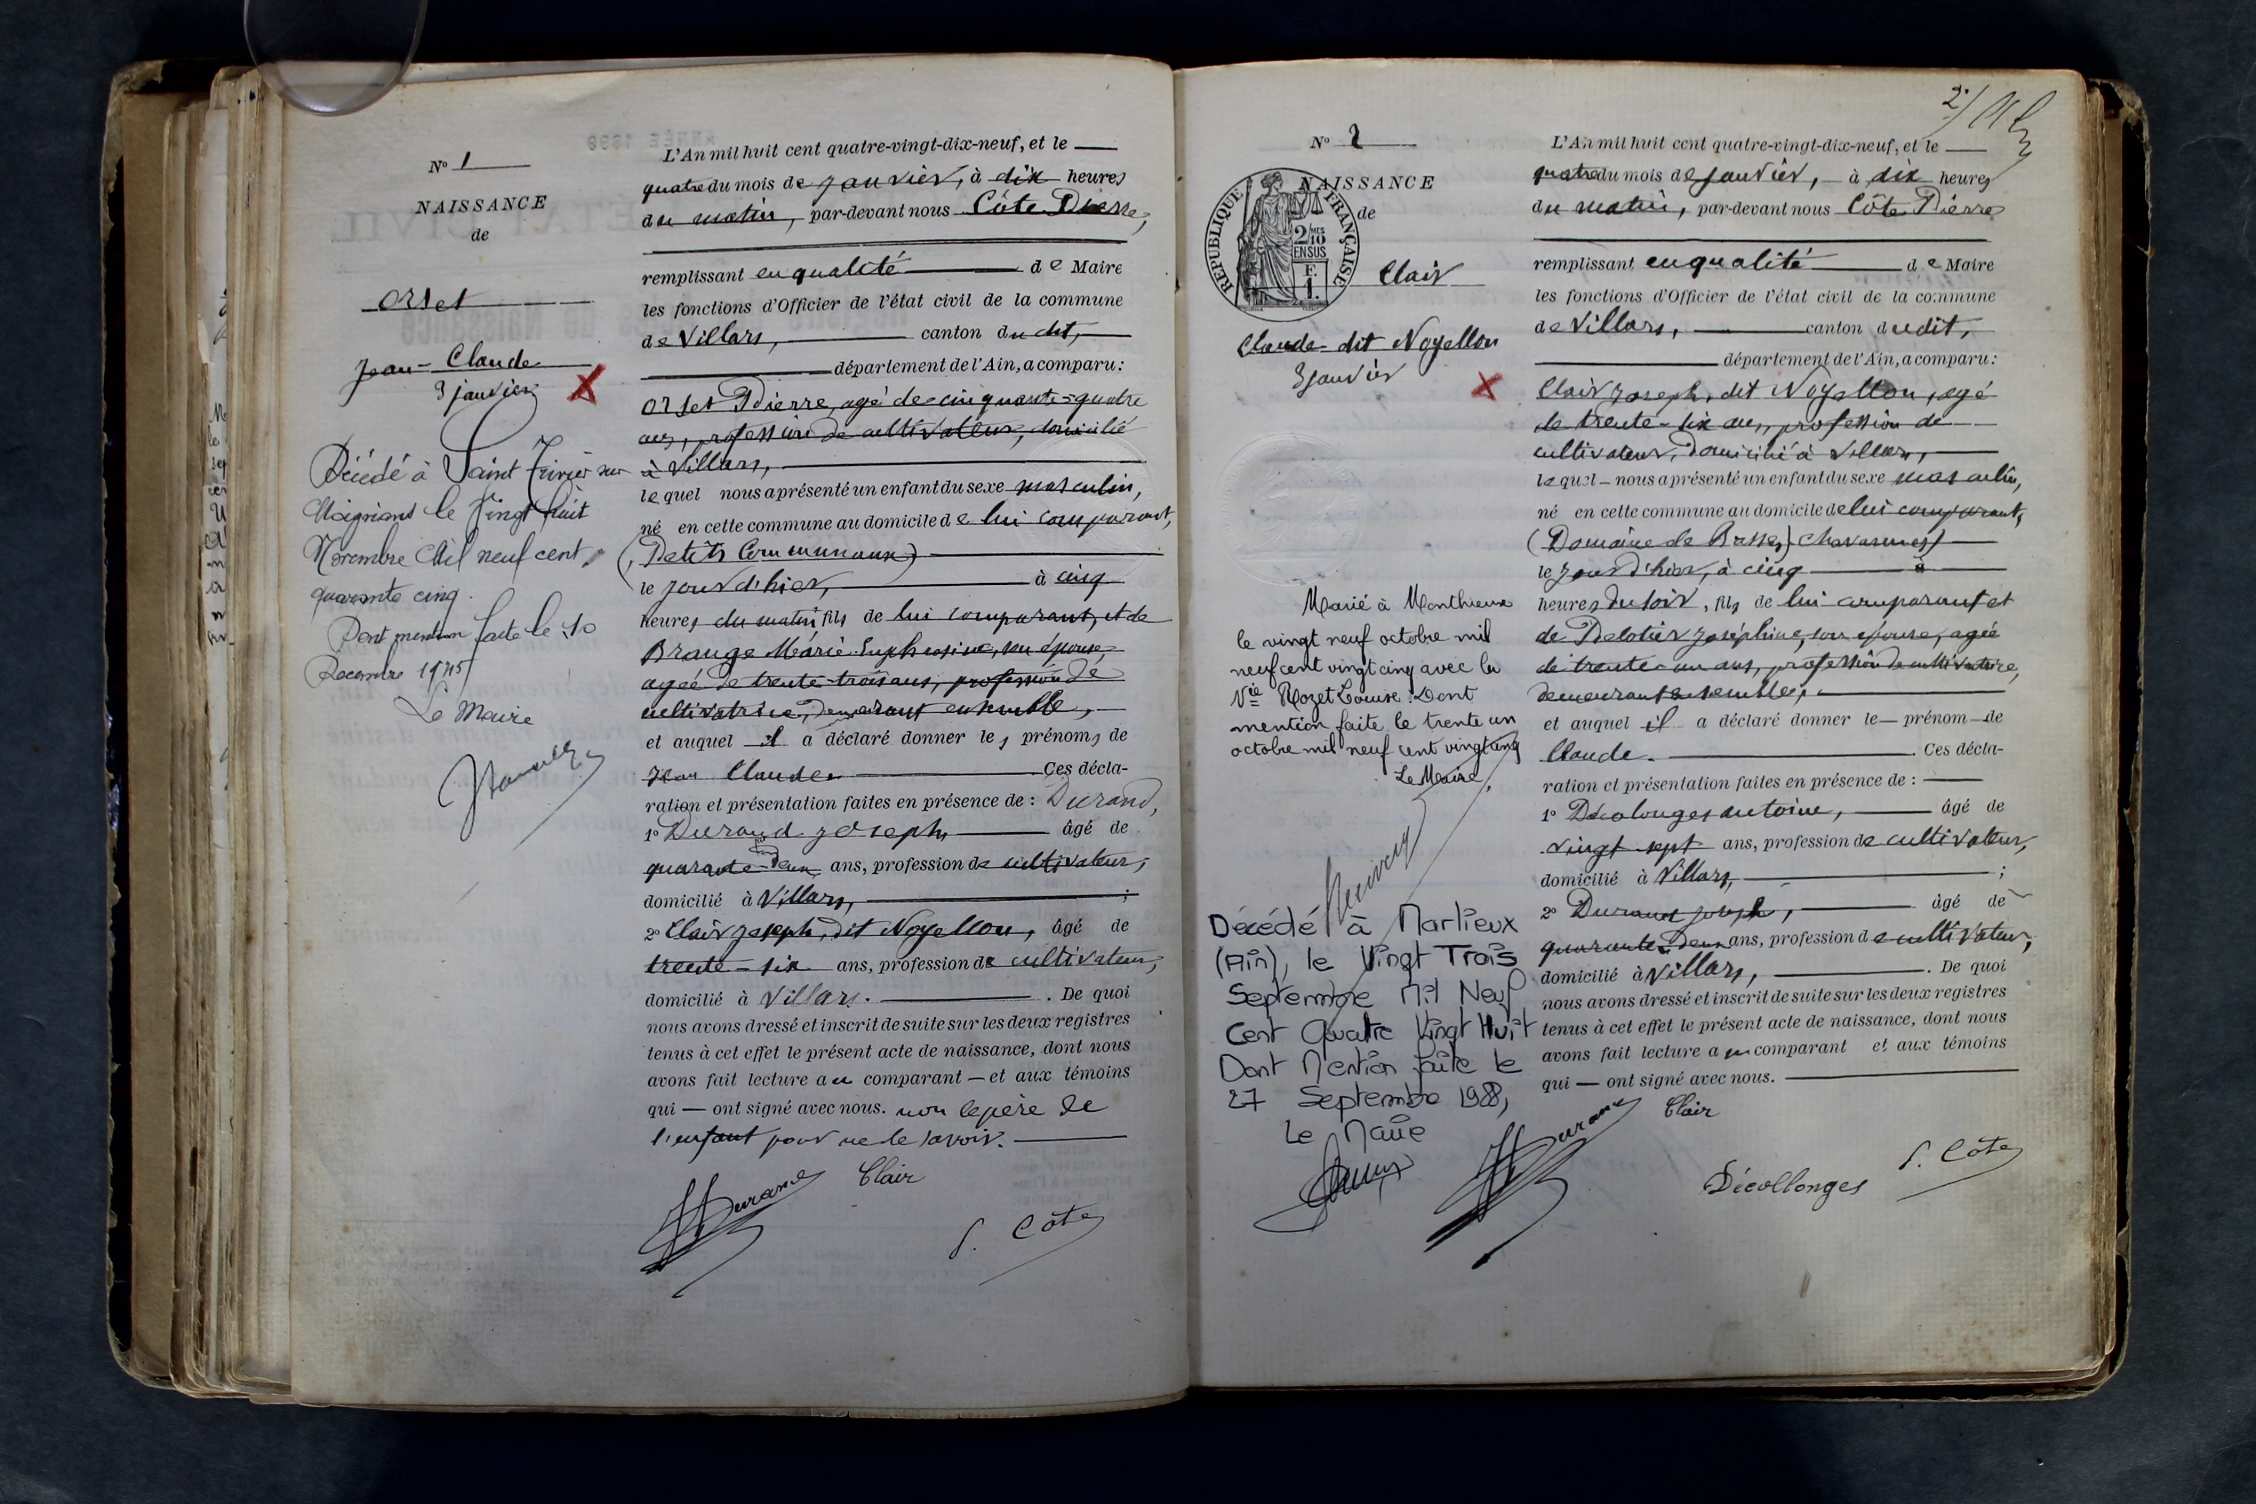 No 1
NAISSANCE
de
Orset
Jean-Claude
3 janvier
Décédé à Saint Trivier sur
Moignans le Vingt huit
Novembre Mil neuf cent
quarante cinq.
Dont mention faite le 10
Décembre 1945
Le Maire
L'An mil huit cent quatre-vingt-dix-neuf, et le
quatre du mois de janvier, à dix heures
du matin, par-devant nous Côte Pierre,
remplissant en qualité de Maire
les fonctions d'Officier de l'état civil de la commune
de Villars, canton dudit,
département de l'Ain, a comparu:
Orset Pierre, agé de cinquante-quatre
ans, profession de cultivateur, domicilié
à Villars,
lequel nous a présenté un enfant du sexe masculin,
né en cette commune au domicile de lui comparant,
(Petits Communaux)
le jour d'hier, à cinq
heures du matin fils de lui comparant, et de
Brange Marie Euphrosine, son épouse,
agée de trente-trois ans, profession de
cultivatrice, demeurant ensemble,
et auquel il a déclaré donner les prénoms de
Jean Claude. Ces décla-
ration et présentation faites en présence de : Durand,
1o Durand Joseph, âgé de
quarante-deux ans, profession de cultivateur,
domicilié à Villars, ;
2o Clair Joseph, dit Noyellon, âgé de
trente-six ans, profession de cultivateur,
domicilié à Villars. . De quoi
nous avons dressé et inscrit de suite sur les deux registres
tenus à cet effet le présent acte de naissance, dont nous
avons fait lecture au comparant — et aux témoins
qui — ont signé avec nous. non le père de
l'enfant pour ne le savoir.
Durand Clair
P. Côte
2
No 2
NAISSANCE
de
RÉPUBLIQUE FRANÇAISE
2/10
EN SUS
F.
1.
Clair
Claude dit Noyellon
3 janvier
Marié à Monthieux
le vingt neuf octobre mil
neuf cent vingt cinq avec la
Vie Rozet Louise. Dont
mention faite le trente un
octobre mil neuf cent vingt cinq
Le Maire,
Décédé à Marlieux
(Ain), le Vingt Trois
Septembre Mil Neuf
Cent Quatre Vingt Huit
Dont Mention faite le
27 Septembre 1988,
Le Maire
L'An mil huit cent quatre-vingt-dix-neuf, et le
quatre du mois de janvier, à dix heures
du matin, par-devant nous Côte Pierre
remplissant en qualité de Maire
les fonctions d'Officier de l'état civil de la commune
de Villars, canton dudit,
département de l'Ain, a comparu:
Clair Joseph, dit Noyellon, agé
de trente-six ans, profession de
cultivateur, Domicilié à Villars,
lequel — nous a présenté un enfant du sexe masculin,
né en cette commune au domicile de lui comparant,
(Domaine de Basses Chavannes)
le jour d'hier, à cinq à
heures du soir, fils de lui comparant et
de Delotier Joséphine, son épouse, agée
de trente-un ans, profession de cultivatrice,
demeurant ensemble,
et auquel il a déclaré donner le — prénom — de
Claude. . Ces décla-
ration et présentation faites en présence de :
1o Décolonges Antoine, âgé de
vingt-sept ans, profession de cultivateur,
domicilié à Villars, ;
2o Durand Joseph, âgé de
quarante-deux ans, profession de cultivateur,
domicilié à Villars, . De quoi
nous avons dressé et inscrit de suite sur les deux registres
tenus à cet effet le présent acte de naissance, dont nous
avons fait lecture au comparant et aux témoins
qui — ont signé avec nous.
Durand Clair
Décollonges P. Côte